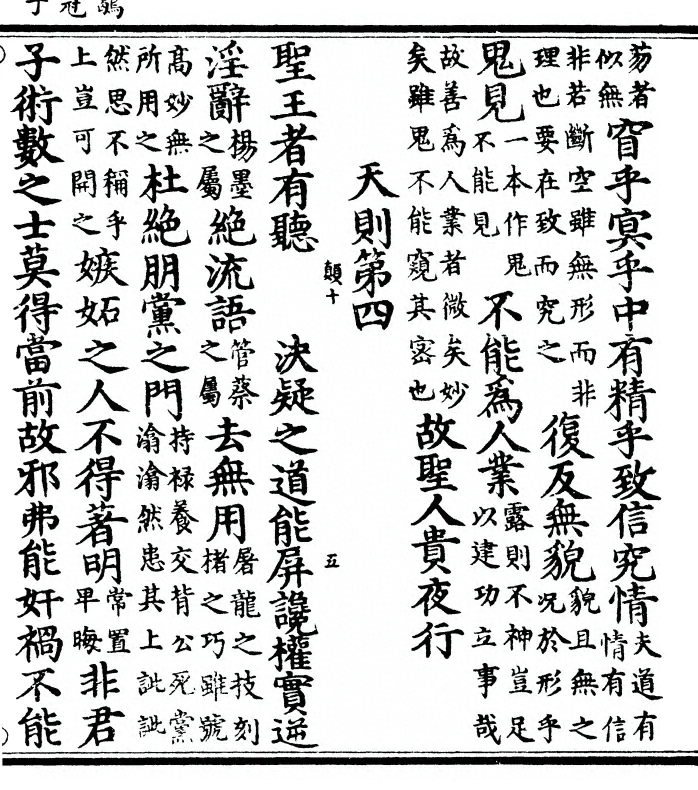 鶡冠子
芴者似無窅乎冥乎中有精乎致信究情夫道有情有信
非若斷空雖無形而非理也要在致而究之復反無貌貌且無之況於形乎
鬼見一本作鬼不能見不能爲人業露則不神豈足以建功立事哉
故善爲人業者微矣妙矣雖鬼不能窺其宻也故聖人貴夜行
天則第四
顛十
聖王者有聽 決疑之道能屏讒權實逆
五
淫辭楊墨之屬絶流語管蔡之屬去無用屠龍之技刻楮之巧雖號
高妙無所用之杜絶朋黨之門持禄養交背公死黨滃滃然患其上訿訿
然思不稱乎上豈可開之嫉妬之人不得著明常置卑晦非君
子術數之士莫得當前故邪弗能奸禍不能